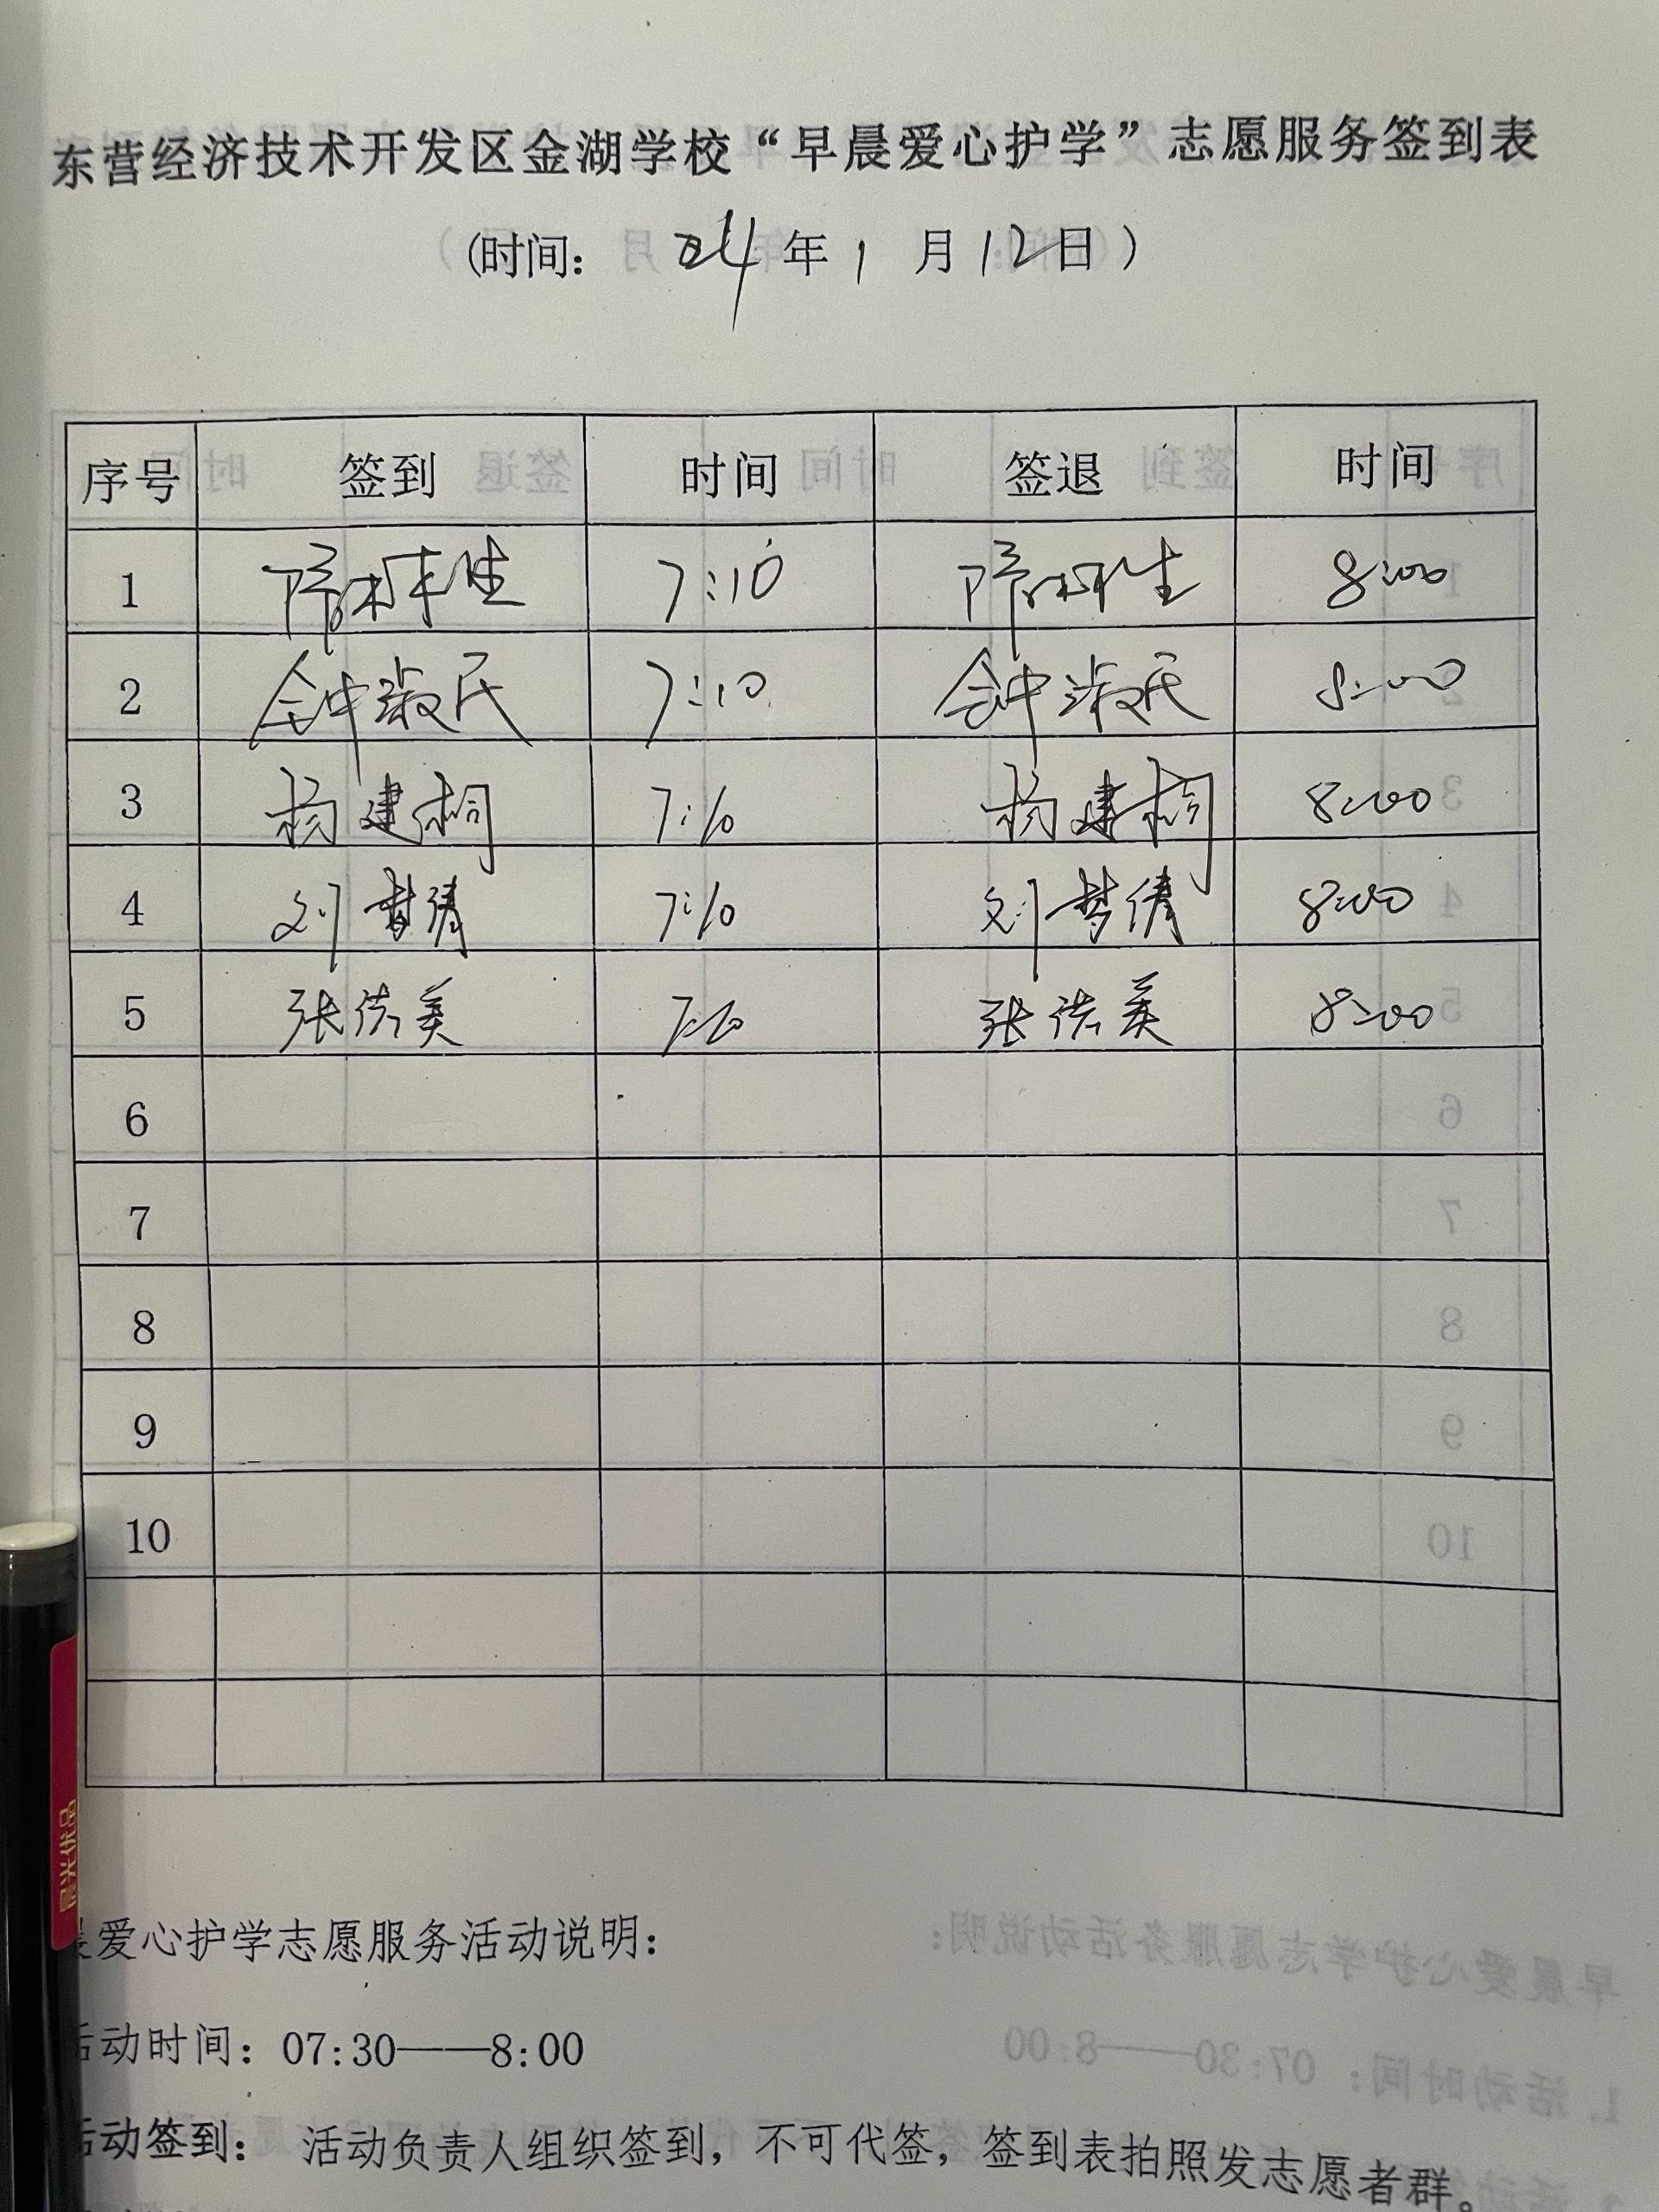 东营经济技术开发区金湖学校“早晨爱心护学”志愿服务签到表
(时间: 24年1月12日)
序号 签到 时间 签退 时间
1 7:10 8:00
2 钟淑民 7:10 钟淑民 8:00
3 杨建桐 7:10 杨建桐 8:00
4 刘梦倩 7:10 刘梦倩 8:00
5 张洁美 7:10 张洁美 8:00
6
7
8
9
10
晨爱心护学志愿服务活动说明:
活动时间: 07:30——8:00
活动签到: 活动负责人组织签到, 不可代签, 签到表拍照发志愿者群。
晨光优品